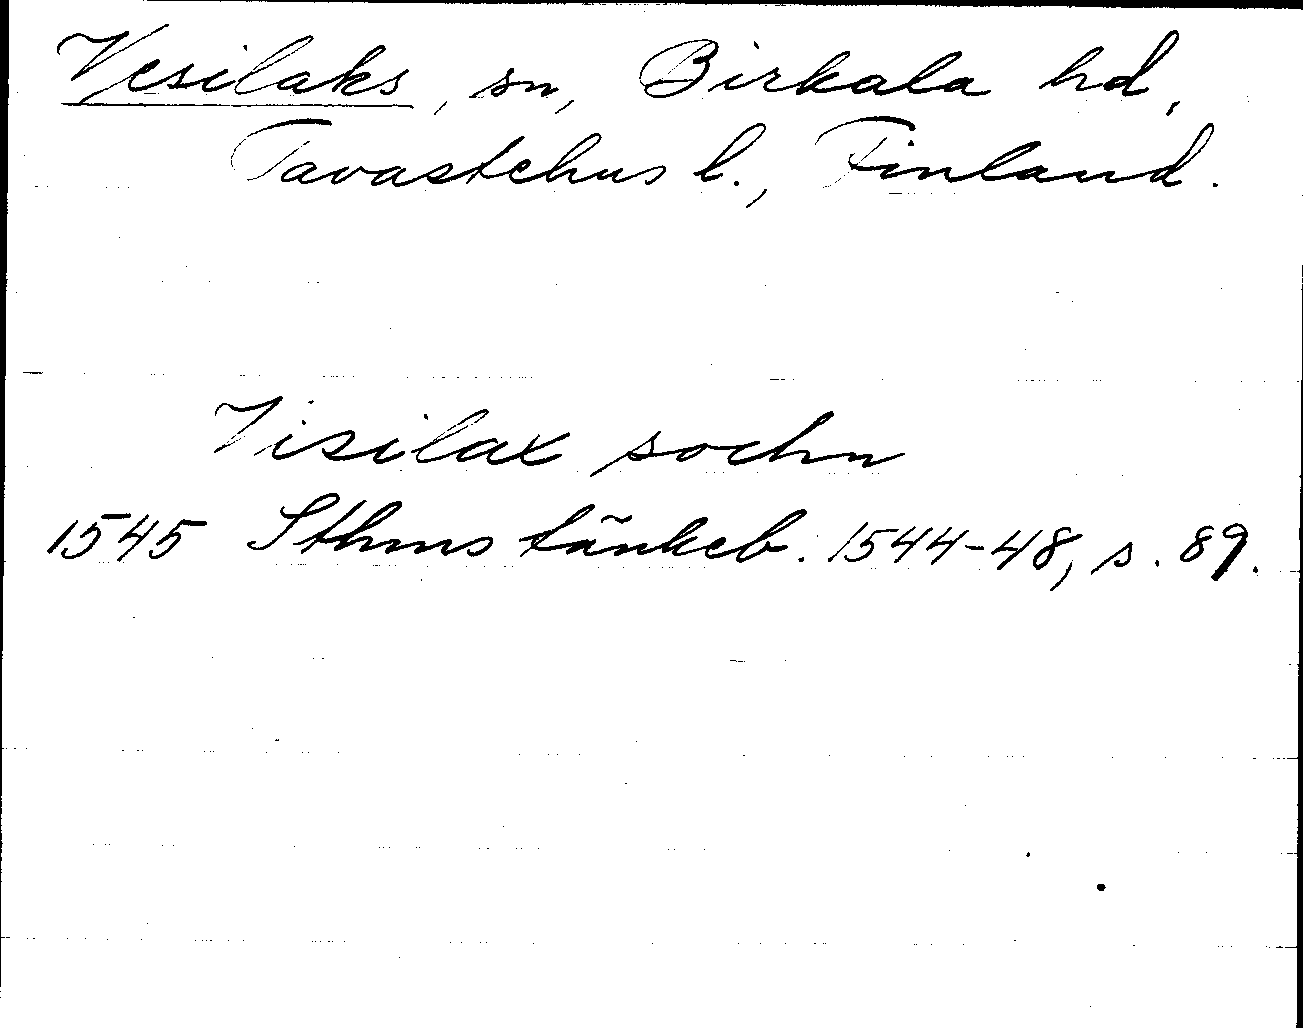 Vesilaks, sn, Birkala hd,
Tavastehus l., Finland.
Visilax sochn
1545 Sthms tänkeb. 1544-48, s. 89.